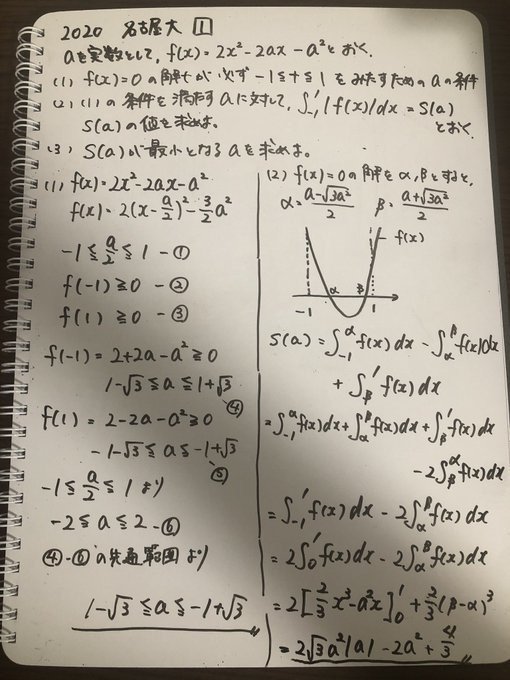 2020 名古屋大 1
aを実数として, f(x)=2x²-2ax-a²とおく.
(1) f(x)=0の解tが必ず-1≦t≦1をみたすためのaの条件
(2) (1)の条件を満たすaに対して, ∫₋₁¹|f(x)|dx=S(a)
とおく
S(a)の値を求めよ.
(3) S(a)が最小となるaを求めよ.
(1) f(x)=2x²-2ax-a²
f(x)=2(x-a/2)²-3/2a²
-1≦a/2≦1 -①
f(-1)≧0 -②
f(1)≧0 -③
f(-1)=2+2a-a²≧0
1-√3≦a≦1+√3
④
f(1)=2-2a-a²≧0
-1-√3≦a≦-1+√3
⑤
-1≦a/2≦1より
-2≦a≦2-⑥
④-⑥の共通範囲より
1-√3≦a≦-1+√3
(2) f(x)=0の解をα,βとすると,
α=(a-√3a²)/2 β=(a+√3a²)/2
f(x)
α β
-1 1
S(a)=∫₋₁^α f(x)dx-∫_α^β f(x)dx
+∫_β^1 f(x)dx
=∫₋₁^α f(x)dx+∫_α^β f(x)dx+∫_β^1 f(x)dx
-2∫_β^α f(x)dx
=∫₋₁¹f(x)dx-2∫_α^β f(x)dx
=2∫₀¹f(x)dx-2∫_α^β f(x)dx
=2[2/3x³-a²x]₀¹+2/3(β-α)³
=2√3a²|a|-2a²+4/3